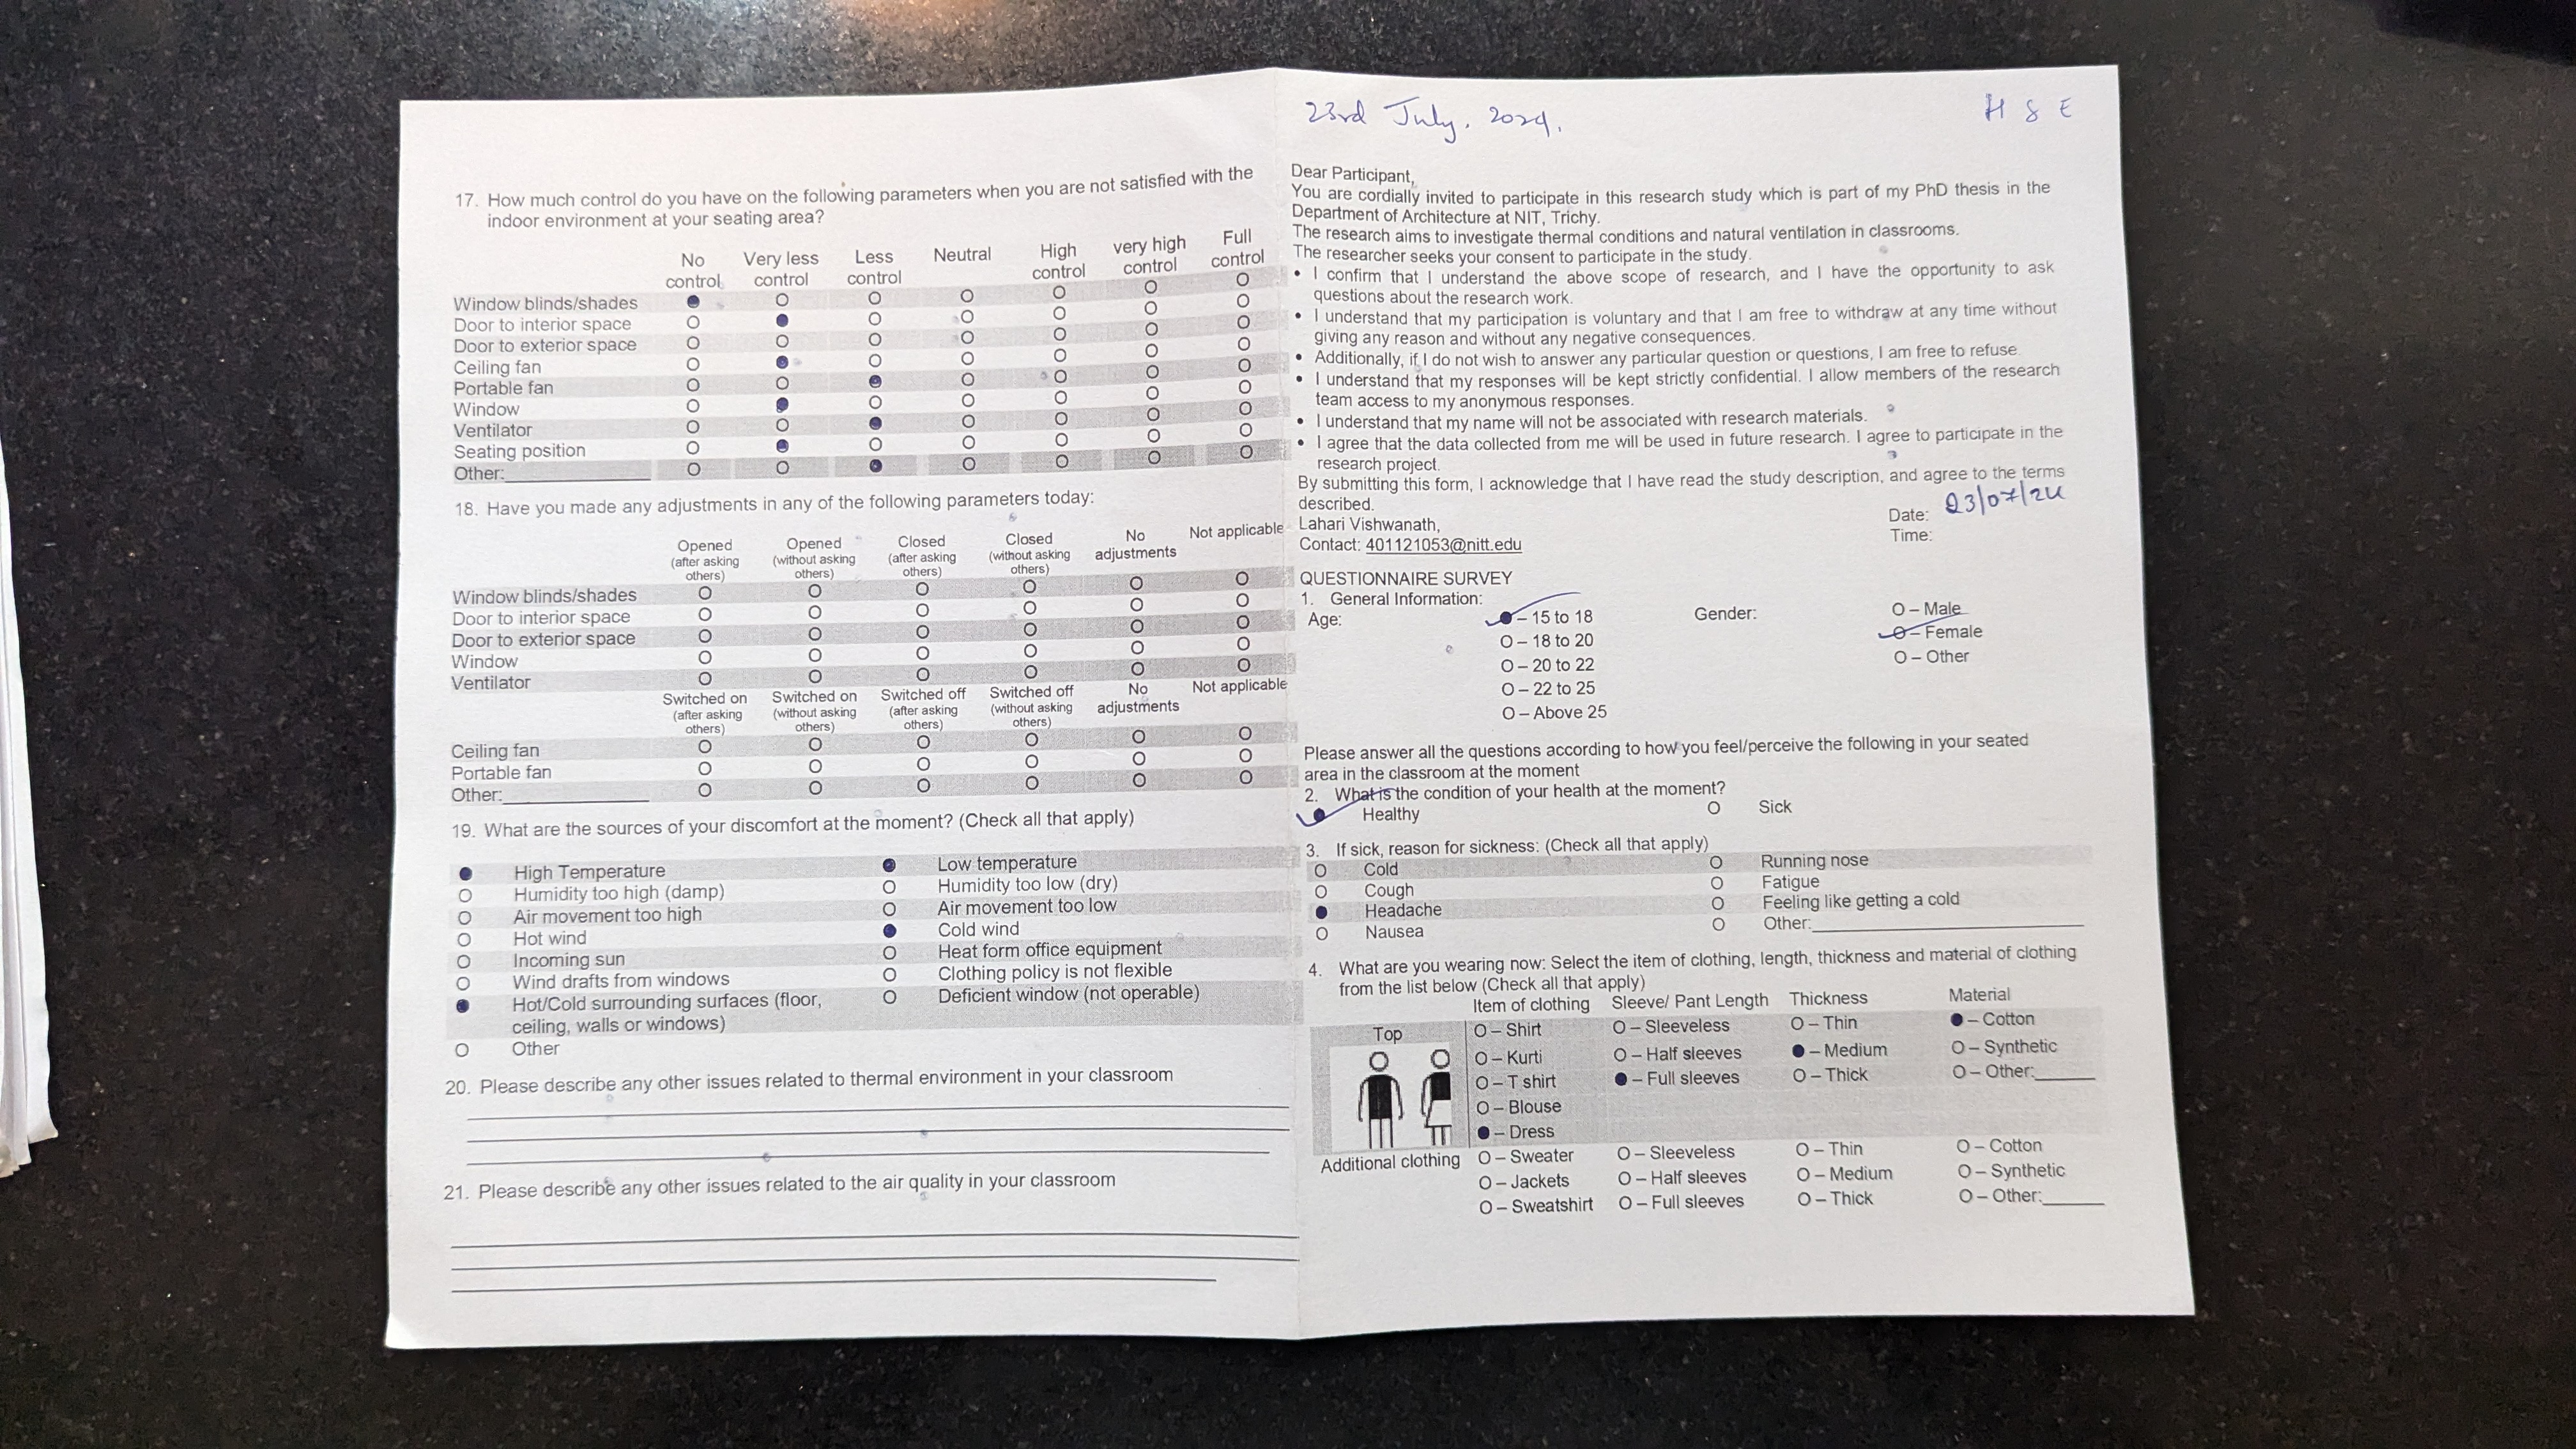 17. How much control do you have on the following parameters when you are not satisfied with the
indoor environment at your seating area?
No control Very less control Less control Neutral High control very high control Full control
Window blinds/shades
Door to interior space
Door to exterior space
Ceiling fan
Portable fan
Window
Ventilator
Seating position
Other:
18. Have you made any adjustments in any of the following parameters today:
Opened (after asking others) Opened (without asking others) Closed (after asking others) Closed (without asking others) No adjustments Not applicable
Window blinds/shades
Door to interior space
Door to exterior space
Window
Ventilator
Switched on (after asking others) Switched on (without asking others) Switched off (after asking others) Switched off (without asking others) No adjustments Not applicable
Ceiling fan
Portable fan
Other:
19. What are the sources of your discomfort at the moment? (Check all that apply)
High Temperature Low temperature
Humidity too high (damp) Humidity too low (dry)
Air movement too high Air movement too low
Hot wind Cold wind
Incoming sun Heat form office equipment
Wind drafts from windows Clothing policy is not flexible
Hot/Cold surrounding surfaces (floor, Deficient window (not operable)
ceiling, walls or windows)
Other
20. Please describe any other issues related to thermal environment in your classroom
21. Please describe any other issues related to the air quality in your classroom
23rd July, 2024. H & E
Dear Participant,
You are cordially invited to participate in this research study which is part of my PhD thesis in the
Department of Architecture at NIT, Trichy.
The research aims to investigate thermal conditions and natural ventilation in classrooms.
The researcher seeks your consent to participate in the study.
• I confirm that I understand the above scope of research, and I have the opportunity to ask
questions about the research work.
• I understand that my participation is voluntary and that I am free to withdraw at any time without
giving any reason and without any negative consequences.
• Additionally, if I do not wish to answer any particular question or questions, I am free to refuse
• I understand that my responses will be kept strictly confidential. I allow members of the research
team access to my anonymous responses.
• I understand that my name will not be associated with research materials.
• I agree that the data collected from me will be used in future research. I agree to participate in the
research project.
By submitting this form, I acknowledge that I have read the study description, and agree to the terms
described.
Lahari Vishwanath, Date: 23/07/24
Contact: 401121053@nitt.edu Time:
QUESTIONNAIRE SURVEY
1. General Information:
Age: – 15 to 18 Gender: O – Male
O – 18 to 20 O – Female
O – 20 to 22 O – Other
O – 22 to 25
O – Above 25
Please answer all the questions according to how you feel/perceive the following in your seated
area in the classroom at the moment
2. What is the condition of your health at the moment?
Healthy Sick
3. If sick, reason for sickness: (Check all that apply)
Cold Running nose
Cough Fatigue
Headache Feeling like getting a cold
Nausea Other:
4. What are you wearing now: Select the item of clothing, length, thickness and material of clothing
from the list below (Check all that apply)
Item of clothing Sleeve/ Pant Length Thickness Material
Top O – Shirt O – Sleeveless O – Thin – Cotton
O – Kurti O – Half sleeves – Medium O – Synthetic
O – T shirt – Full sleeves O – Thick O – Other:
O – Blouse
– Dress
Additional clothing O – Sweater O – Sleeveless O – Thin O – Cotton
O – Jackets O – Half sleeves O – Medium O – Synthetic
O – Sweatshirt O – Full sleeves O – Thick O – Other: